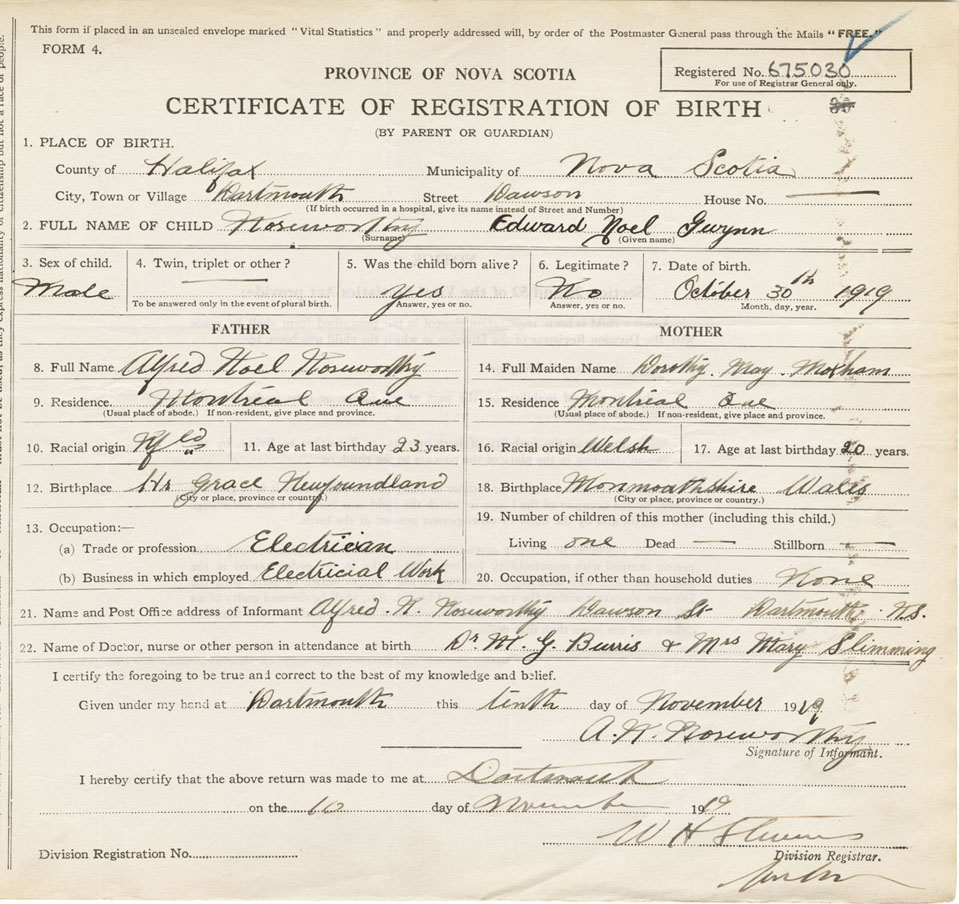 This form if placed in an unsealed envelope marked "Vital Statistics" and properly addressed will, by order of the Postmaster General pass through the Mails "FREE."
FORM 4.
Registered No. 675030
For use of Registrar General only.
PROVINCE OF NOVA SCOTIA
CERTIFICATE OF REGISTRATION OF BIRTH
(BY PARENT OR GUARDIAN)
1. PLACE OF BIRTH.
County of Halifax Municipality of Nova Scotia
City, Town or Village Dartmouth Street Dawson House No.
(If birth occurred in a hospital, give its name instead of Street and Number)
2. FULL NAME OF CHILD Noseworthy Edward Noel Gwynn
(Surname) (Given name)
3. Sex of child. 4. Twin, triplet or other? 5. Was the child born alive? 6. Legitimate? 7. Date of birth.
Male yes No October 30th 1919
To be answered only in the event of plural birth. Answer, yes or no. Answer, yes or no. Month, day, year.
FATHER MOTHER
8. Full Name Alfred Noel Noseworthy 14. Full Maiden Name Dorothy May Moxham
9. Residence. Montrial Que 15. Residence Montrial Que
(Usual place of abode.) If non-resident, give place and province. (Usual place of abode.) If non-resident, give place and province.
10. Racial origin Nfld 11. Age at last birthday 23 years. 16. Racial origin Welsh 17. Age at last birthday 20 years.
12. Birthplace Hr Grace Newfoundland 18. Birthplace Monmoathshire Wales
(City or place, province or country.) (City or place, province or country.)
13. Occupation:— 19. Number of children of this mother (including this child.)
(a) Trade or profession Electrican Living one Dead — Stillborn —
(b) Business in which employed Electricial Work 20. Occupation, if other than household duties None
21. Name and Post Office address of Informant Alfred. N. Noseworthy Dawson St Dartmouth N.S.
22. Name of Doctor, nurse or other person in attendance at birth Dr M. G. Burris & Mrs Mary Slimming
I certify the foregoing to be true and correct to the best of my knowledge and belief.
Given under my hand at Dartmouth this tenth day of November 1919
A. N. Noseworthy
Signature of Informant.
I hereby certify that the above return was made to me at Dartmouth
on the 10 day of November 1919
W H
Division Registration No. Division Registrar.